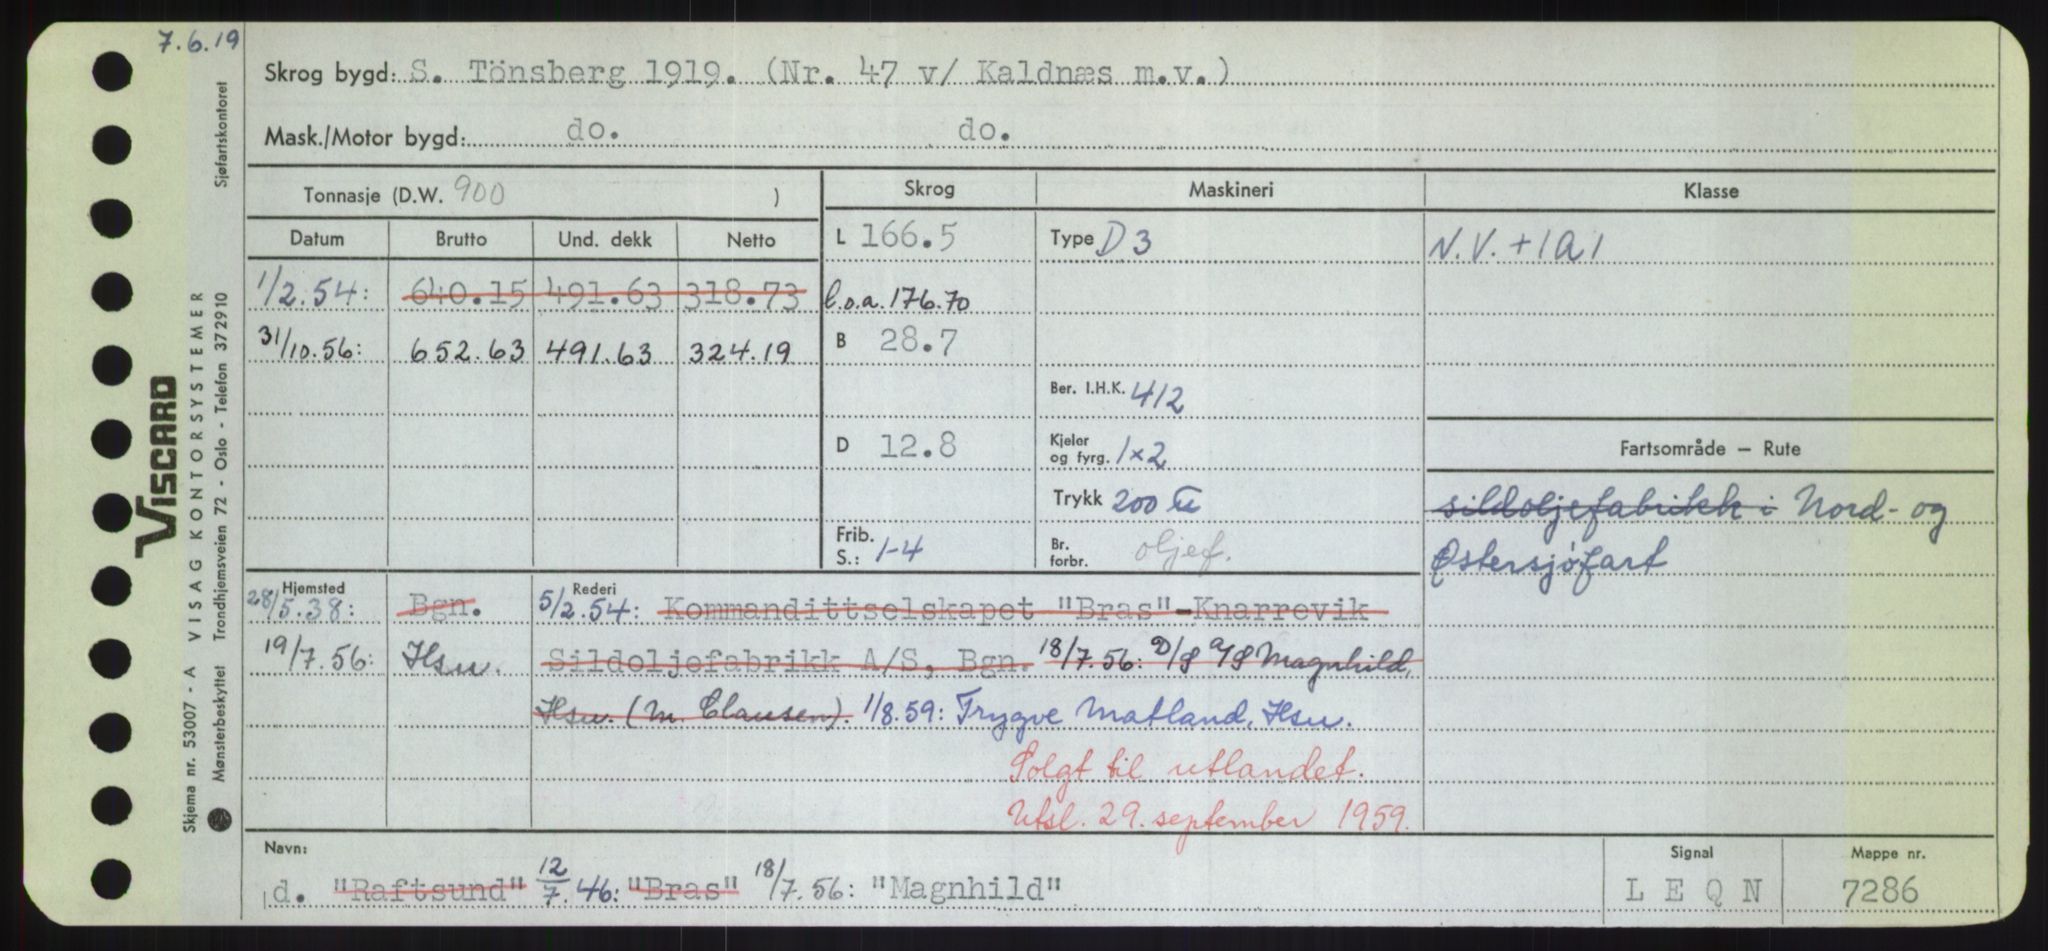 7.6.19
Skrog bygd: S. Tönsberg 1919. (Nr. 47 v/ Kaldnæs m.v.)
Mask./Motor bygd: do. do.
Tonnasje (D.W. 900 )
Datum Brutto Und. dekk Netto
1/2.54: 640.15 491.63 318.73
31/10.56: 652.63 491.63 324.19
Skrog
L 166.5
l.o.a. 176.70
B 28.7
D 12.8
Frib.
S.: 1-4
Maskineri
Type D 3
Ber. I.H.K. 412
Kjeler
og fyrg. 1×2
Trykk 200 ℔
Br.
forbr. oljef.
Klasse
N.V. +1A1
Fartsområde – Rute
sildoljefabrikk i Nord- og
Østersjøfart
Hjemsted
28/5.38: Bgn.
19/7.56: Hsu.
Rederi
5/2.54: Kommandittselskapet "Bras"-Knarrevik
Sildoljefabrikk A/S, Bgn. 18/7.56: D/S A/S Magnhild,
Hsu. (M. Clausen). 1/8.59: Trygve Matland, Hsu.
Solgt til utlandet.
Utsl. 29. september 1959.
Navn:
d. "Raftsund" 12/7.46: "Bras" 18/7.56: "Magnhild"
Signal
L E Q N
Mappe nr.
7286
VISCARD
Skjema nr. 53007 - A VISAG KONTORSYSTEMER
Mønsterbeskyttet Trondhjemsveien 72 - Oslo - Telefon 372910
Sjøfartskontoret